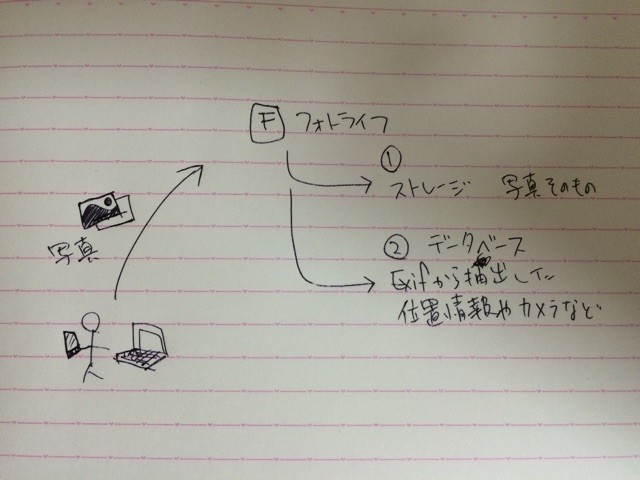 F フォトライフ
①
ストレージ 写真そのもの
写真
② データベース
Exifから抽出した
位置情報やカメラなど